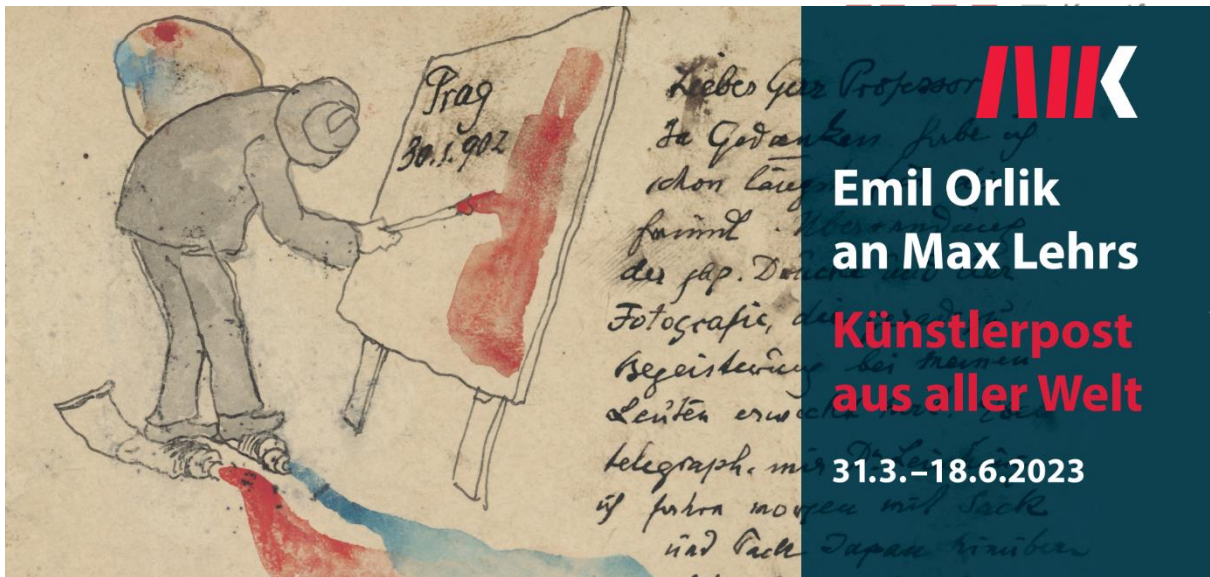 Prag
30.1.902
Liebes Herr Professor
In Gedanken habe ich
schon längst
der jap. Drucke und der
Fotografie, die gerade
Begeisterung bei meinen
Leuten erweckt
telegraph. mir
ich fahre morgen mit Sack
und Pack Japan hinüber
Emil Orlik
an Max Lehrs
Künstlerpost
aus aller Welt
31.3.–18.6.2023